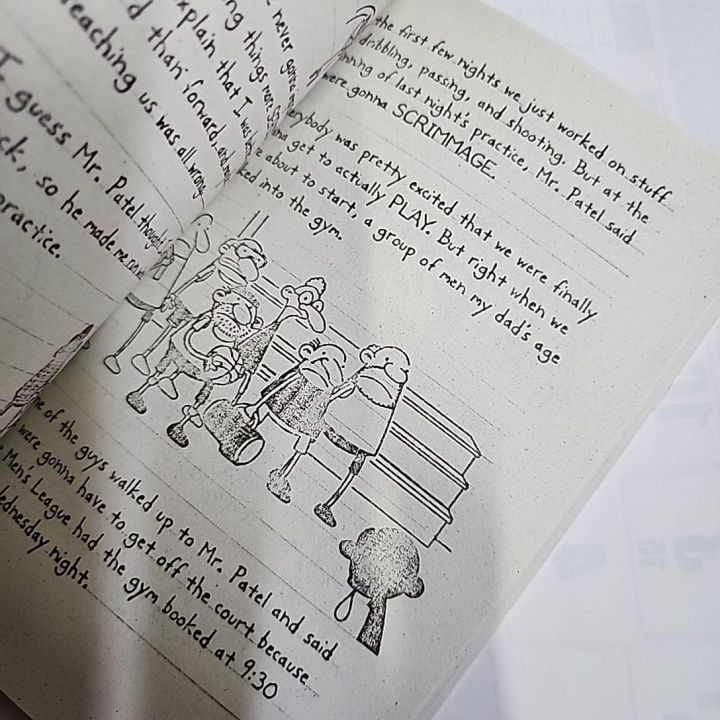 never gonna
things more
that I was
than forward, and
us was all wrong.
I guess Mr. Patel thought
so he made me run
practice.
the first few nights we just worked on stuff
dribbling, passing, and shooting. But at the
of last night's practice, Mr. Patel said
were gonna SCRIMMAGE.
was pretty excited that we were finally
get to actually PLAY. But right when we
about to start, a group of men my dad's age
into the gym.
of the guys walked up to Mr. Patel and said
were gonna have to get off the court because
Men's League had the gym booked at 9:30
night.